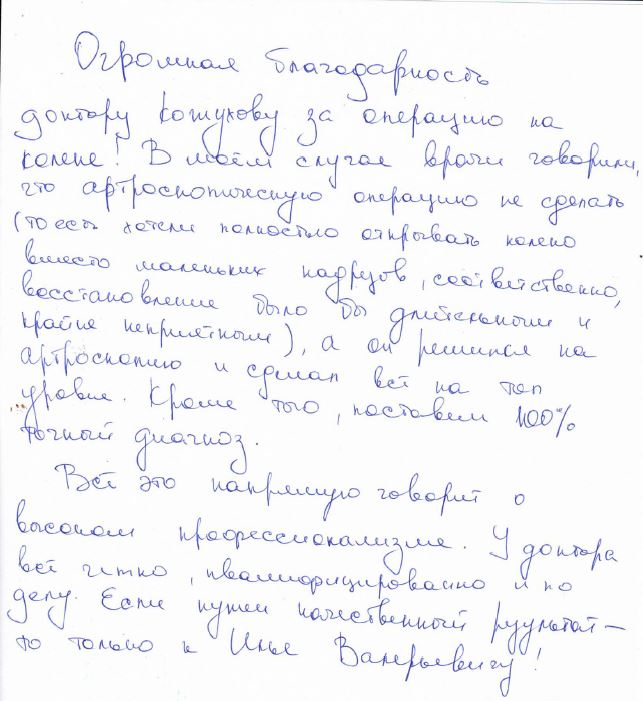 Огромная благодарность
доктору Кожухову за операцию на
колене! В моём случае врачи говорили,
что артроскопическую операцию не сделать
(то есть хотели полностью открывать колено
вместо маленьких надрезов, соответственно,
восстановление было бы длительным и
крайне неприятным), а он решился на
артроскопию и сделал всё на топ
уровне. Кроме того, поставил 100%
точный диагноз.
Всё это напрямую говорит о
высоком профессионализме. У доктора
всё чётко, квалифицированно и по
делу. Если нужен качественный результат —
то только к Илье Валерьевичу!